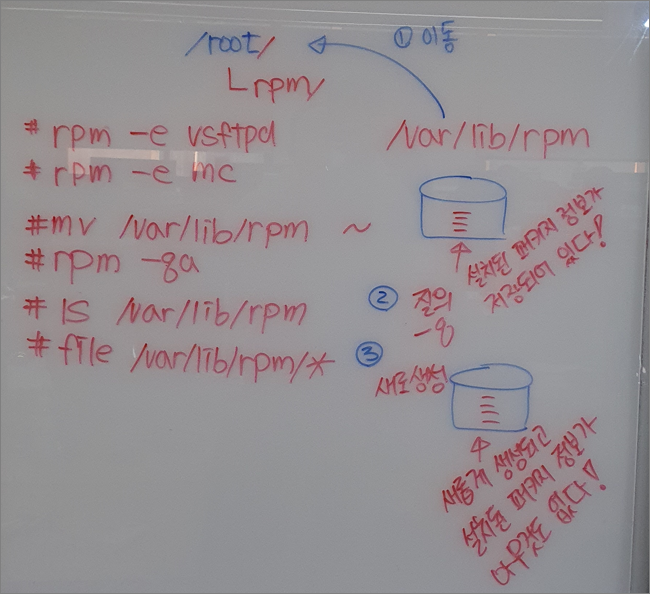 /root/
① 이동
└rpm/
# rpm -e vsftpd
# rpm -e mc
/var/lib/rpm
#mv /var/lib/rpm ~
#rpm -qa
# ls /var/lib/rpm
# file /var/lib/rpm/*
설치된 패키지 정보가
저장되어 있다!
② 질의
-q
③
새로생성
새롭게 생성되고
설치된 패키지 정보가
아무것도 없다!